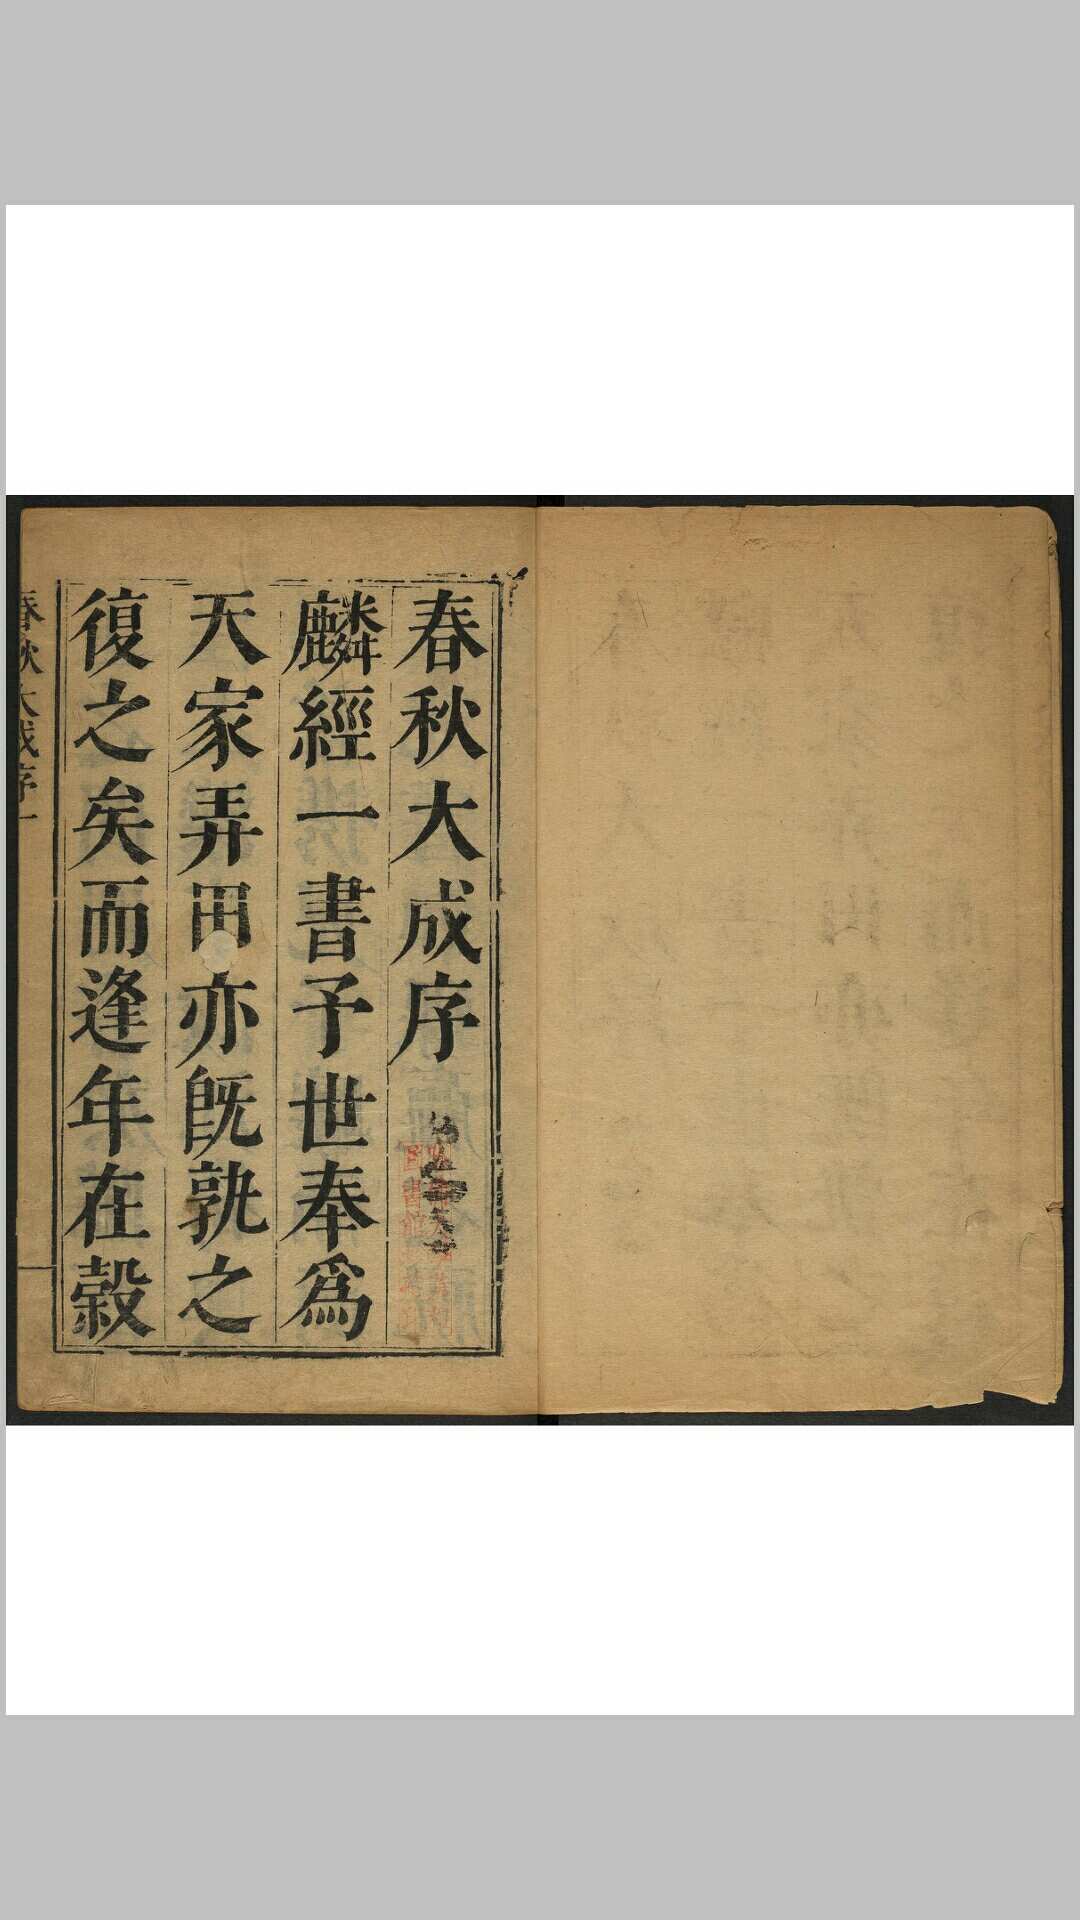 春秋大成序
麟經一書予世奉爲
天家弄田亦旣孰之
復之矣而逢年在穀
春秋大成序一